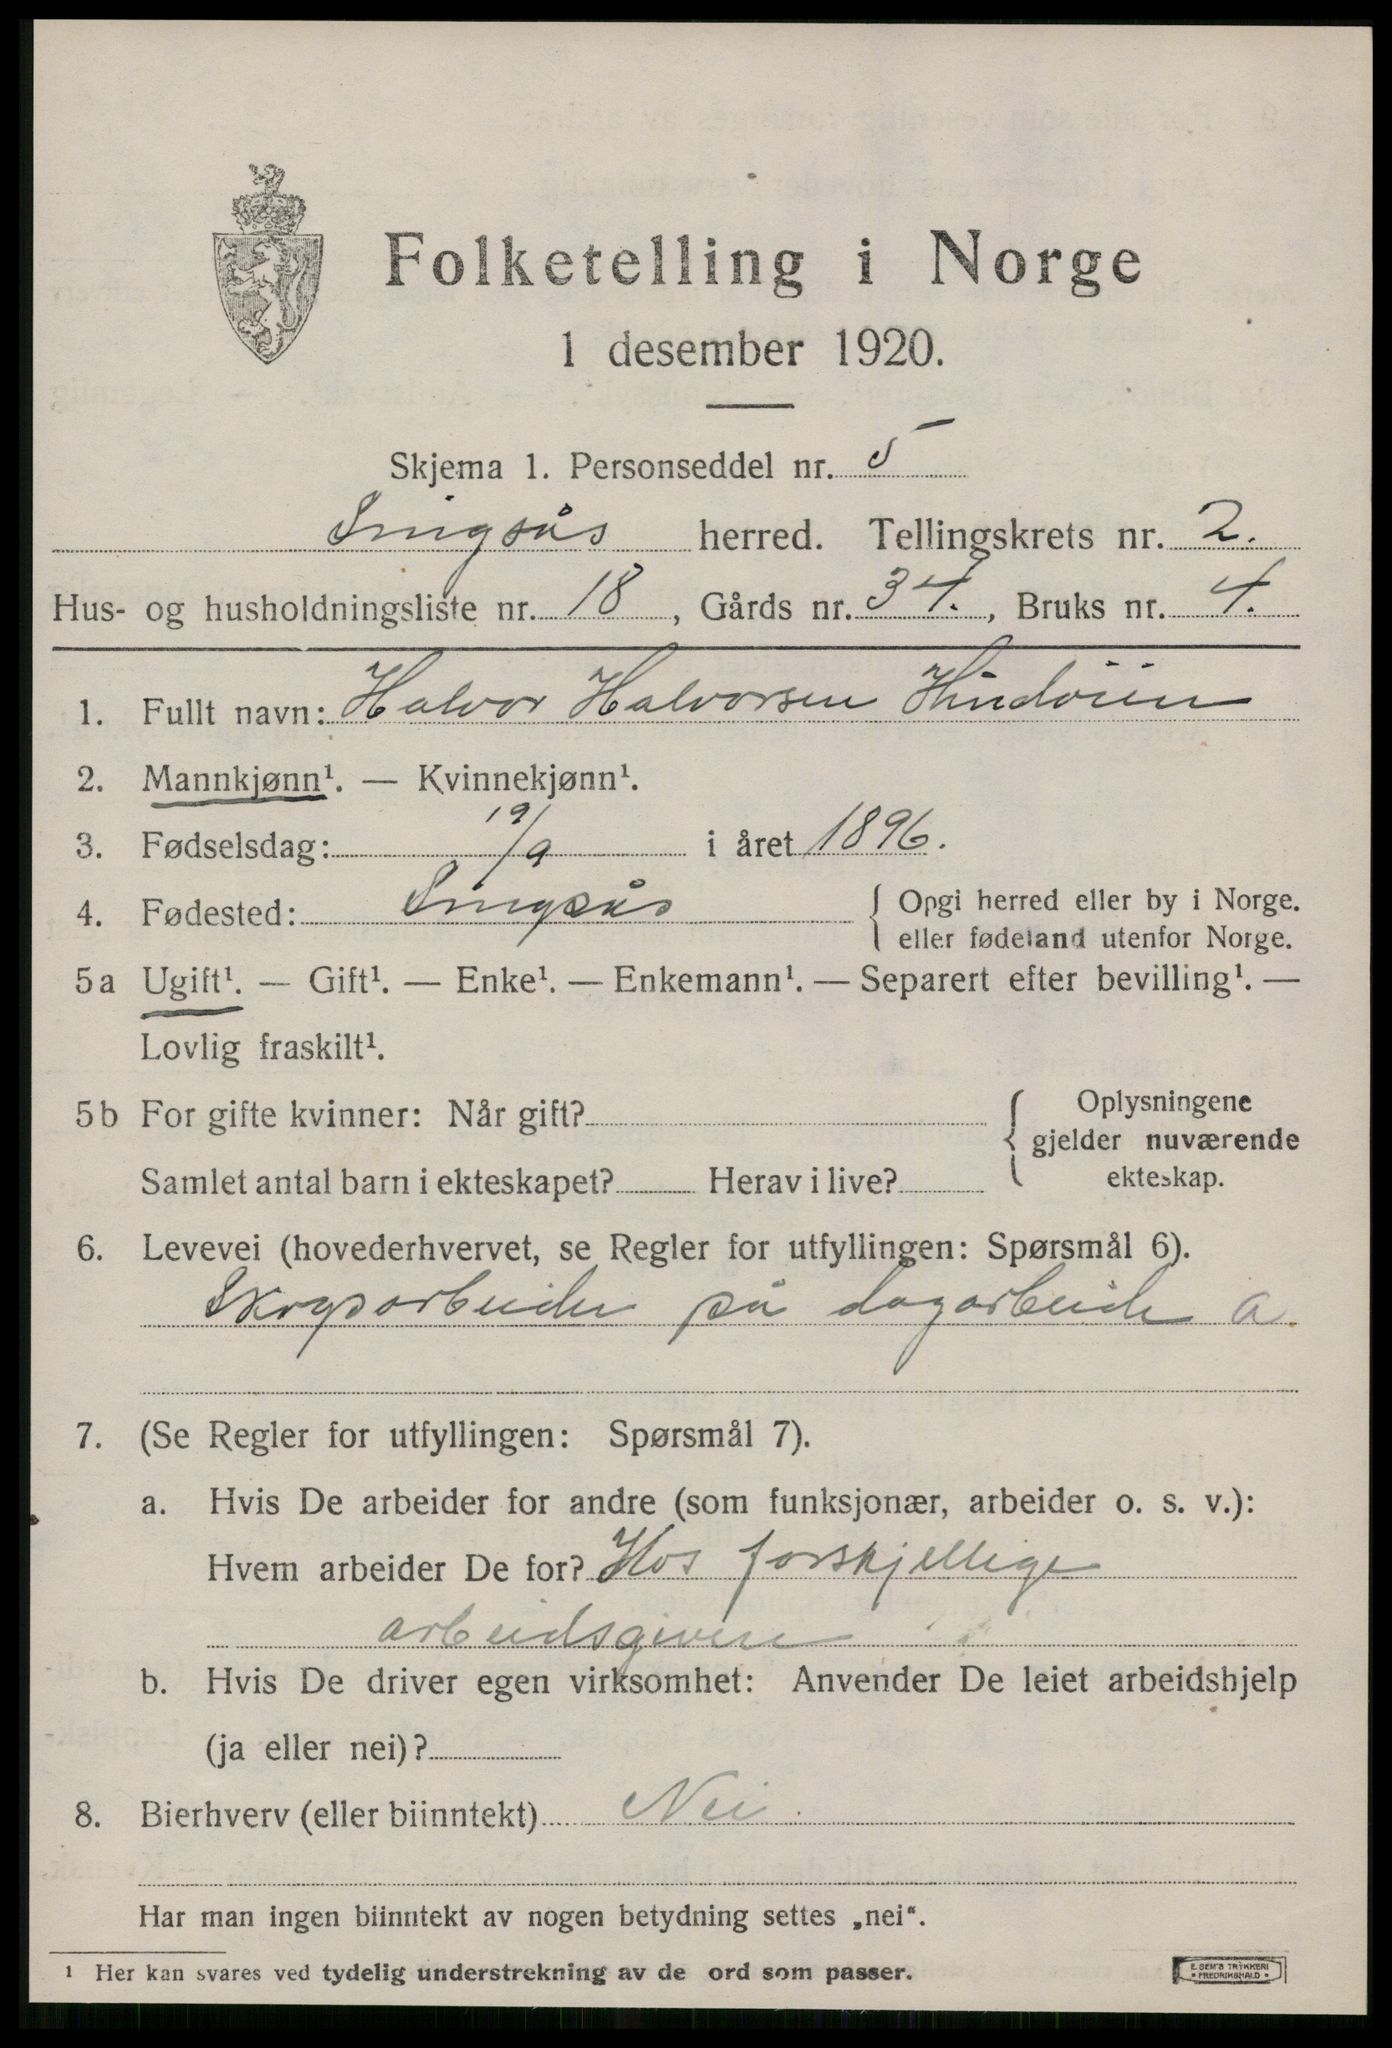 Folketelling i Norge
1 desember 1920.
Skjema 1. Personseddel nr. 5
Singsås herred. Tellingskrets nr. 2.
Hus- og husholdningsliste nr. 18, Gårds nr. 34., Bruks nr. 4.
1. Fullt navn: Halvor Halvorsen Hindöien
2. Mannkjønn¹. — Kvinnekjønn¹.
3. Fødselsdag: 19/9 i året 1896.
4. Fødested: Singsås { Opgi herred eller by i Norge.
eller fødeland utenfor Norge.
5a Ugift¹. — Gift¹. — Enke¹. — Enkemann¹. — Separert efter bevilling¹. —
Lovlig fraskilt¹.
5b For gifte kvinner: Når gift? { Oplysningene
gjelder nuværende
Samlet antal barn i ekteskapet? Herav i live? ekteskap.
6. Levevei (hovederhvervet, se Regler for utfyllingen: Spørsmål 6).
Skogsarbeider på dagarbeide a.
7. (Se Regler for utfyllingen: Spørsmål 7).
a. Hvis De arbeider for andre (som funksjonær, arbeider o. s. v.):
Hvem arbeider De for? Hos forskjellige
arbeidsgivere
b. Hvis De driver egen virksomhet: Anvender De leiet arbeidshjelp
(ja eller nei)?
8. Bierhverv (eller biinntekt) Nei
Har man ingen biinntekt av nogen betydning settes „nei“.
¹ Her kan svares ved tydelig understrekning av de ord som passer.
E. SEM'S TRYKKERI
• FREDRIKSHALD •